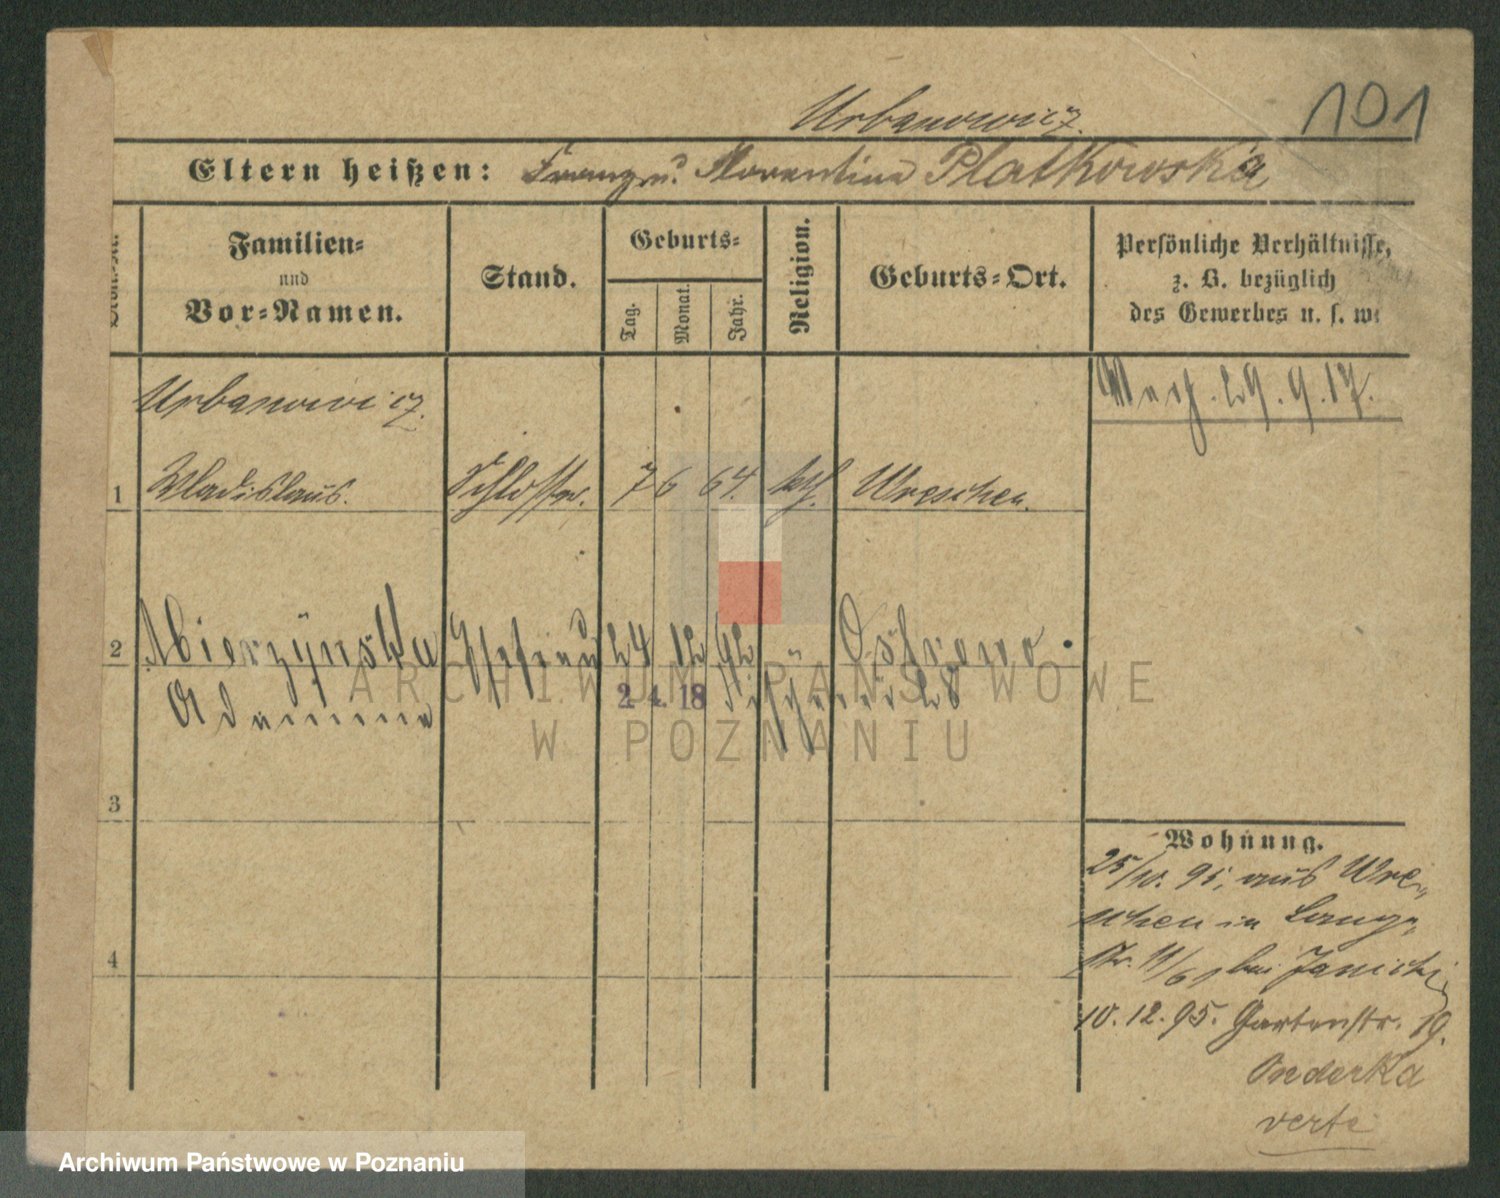 101
Urbanowicz.
Eltern heißen: Franz u. Florentina Platkowska
Familien-
und
Vor-Namen.
Stand.
Geburts-
Tag.
Monat.
Jahr.
Religion.
Geburts-Ort.
Persönliche Verhältnisse,
z. B. bezüglich
des Gewerbes u. s. w.
Urbanowicz.
29.9.17.
1 Wladislaus. Schlosser. 7 6 64. kth. Wreschen.
2 Mierzynska Ehefrau 24 12 92 Ostrowo.
2. 4. 18
3
4
Wohnung.
25/10. 95. aus Wre-
schen in Lange-
str. 11/61 bei Janicki
10.12.95. Gartenstr. 19.
Onderka
verte
ARCHIWUM PAŃSTWOWE
W POZNANIU
Archiwum Państwowe w Poznaniu